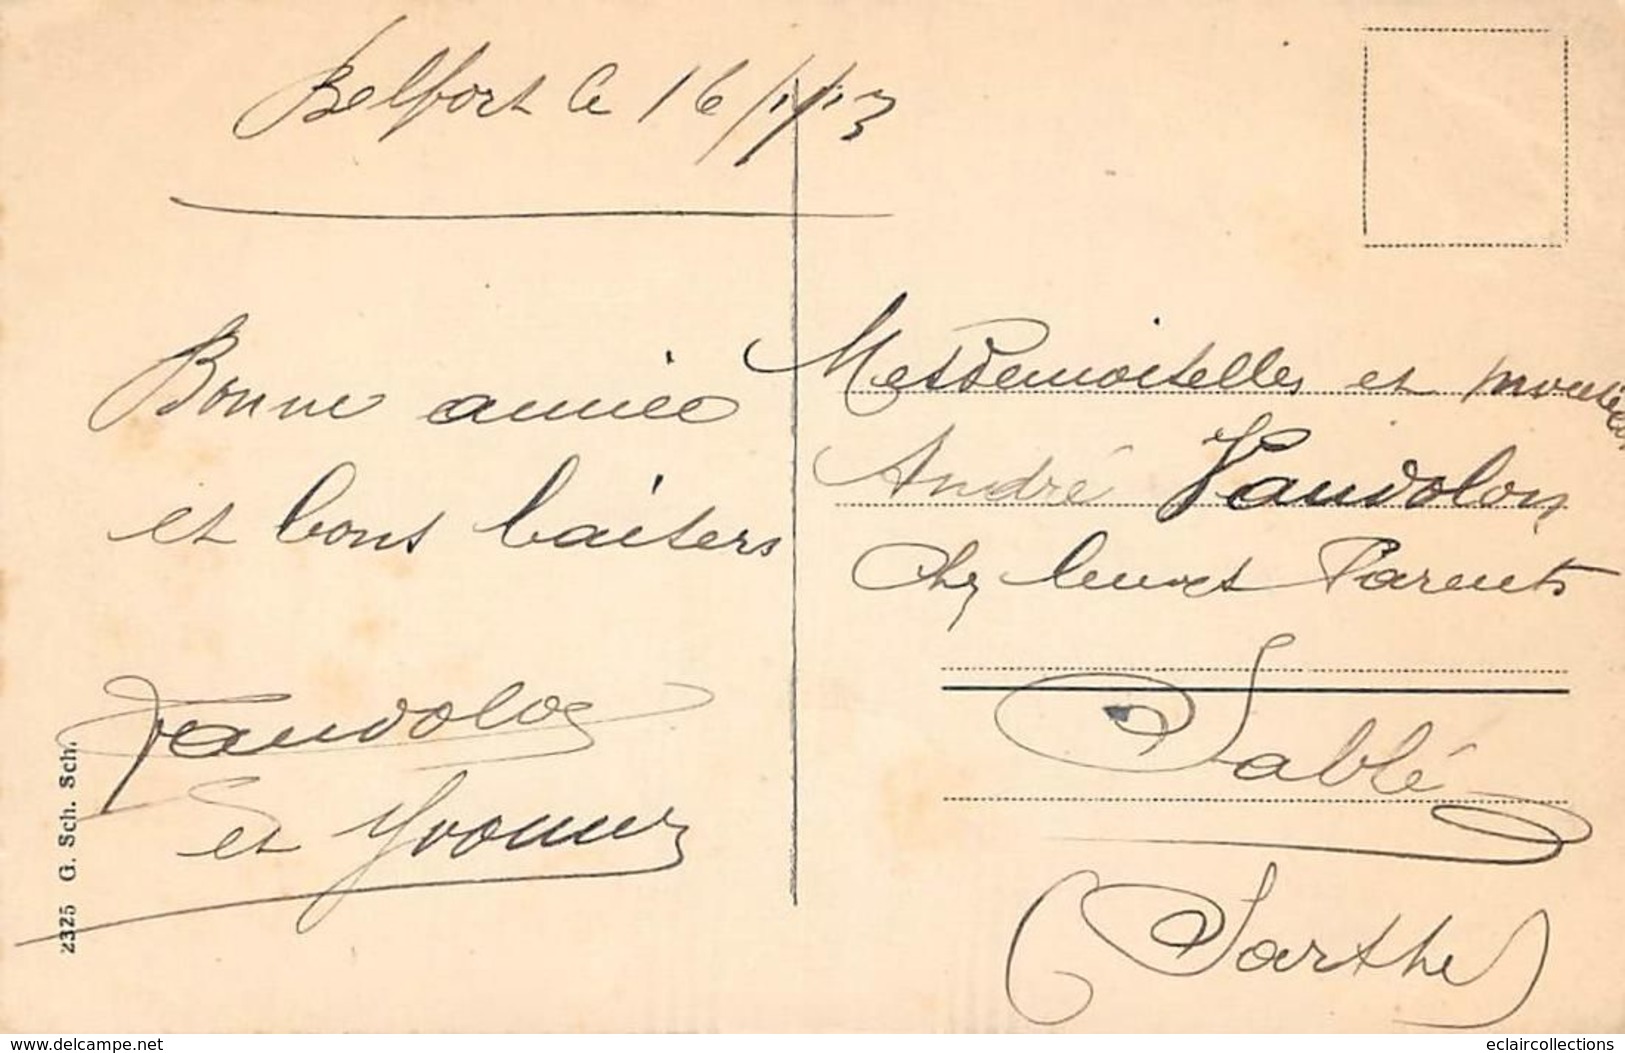 Belfort le 16/1/13
Bonne année
et bons baisers
Vaudolon
et Yvonne
2325 G. Sch. Sch.
Mesdemoiselles et Monsieur
André Vaudolon
chez leurs Parents
Sablé
(Sarthe)
www.delcampe.net
eclaircollections